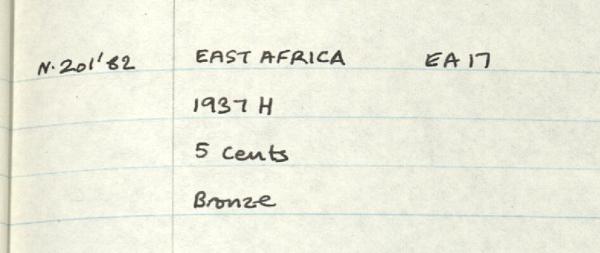 N.201'82 EAST AFRICA EA17
1937 H
5 Cents
Bronze